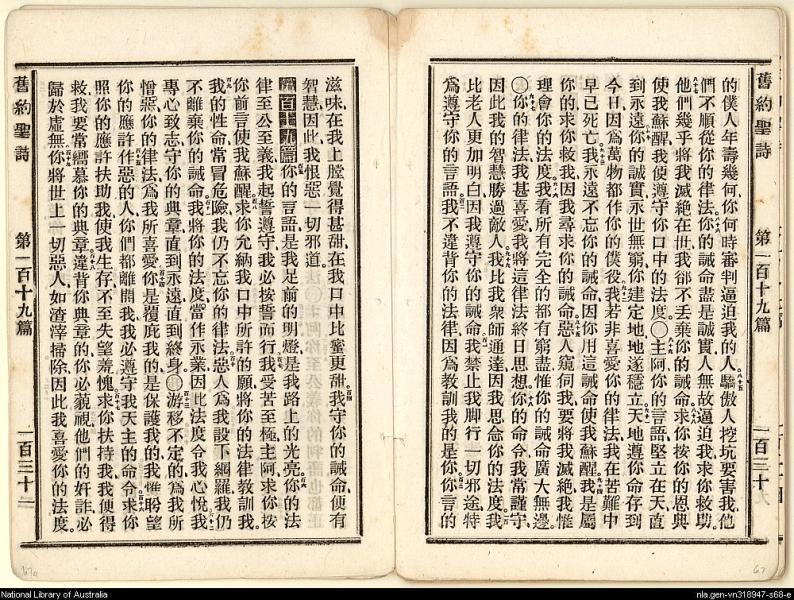 舊約聖詩　第一百十九篇　一百三十
的僕人年壽幾何你何時審判逼迫我的人驕傲人挖坑要害我他
們不順從你的律法你的誡命盡是誠實人無故逼迫我求你救助
他們幾乎將我滅絕在世我卻不丟棄你的誡命求你按你的恩典
使我蘇醒我便遵守你口中的法度〇主阿你的言語堅立在天直
到永遠你的誠實永世無窮你建定地地遂穩立天地遵你命存到
今日因爲萬物都作你的僕役我若非喜愛你的律法我在苦難中
早已死亡我永遠不忘你的誡命因你用這誡命使我蘇醒我是屬
你的求你救我因我尋求你的誡命惡人窺伺我要將我滅絕我惟
理會你的法度我看所有完全的都有窮盡惟你的誡命廣大無邊
〇你的律法我甚喜愛我將這律法終日思想你的命令我常謹守
因此我的智慧勝過敵人我比我衆師通達因我思念你的法度我
比老人更加明白因我遵守你的誡命我禁止我脚行一切邪途特
爲遵守你的言語我不違背你的法律因爲教訓我的是你你言的
滋味在我上膛覺得甚甜在我口中比蜜更甜我守你的誡命便有
智慧因此我恨惡一切邪道
你的言語是我足前的明燈是我路上的光亮你的法
律至公至義我起誓遵守我必按誓而行我受苦至極主阿求你按
你前言使我蘇醒求你允納我口中所許的願將你的法律教訓我
我的性命常冒危險我仍不忘你的律法惡人爲我設下網羅我仍
不離棄你的誡命我將你的法度當作永業因此法度令我心悅我
專心致志守你的典章直到永遠直到終身〇游移不定的爲我所
憎惡你的律法爲我所喜愛你是覆庇我的是保護我的我惟盼望
你的應許作惡的人你們都離開我我必遵守我天主的命令求你
照你的應許扶助我使我生存不至失望羞愧求你扶持我我便得
救我要常嚮慕你的典章違背你典章的你必藐視他們的奸詐必
歸於虛無你將世上一切惡人如渣滓掃除因此我喜愛你的法度
舊約聖詩　第一百十九篇　一百三十
67a
67
National Library of Australia
nla.gen-vn318947-s68-e